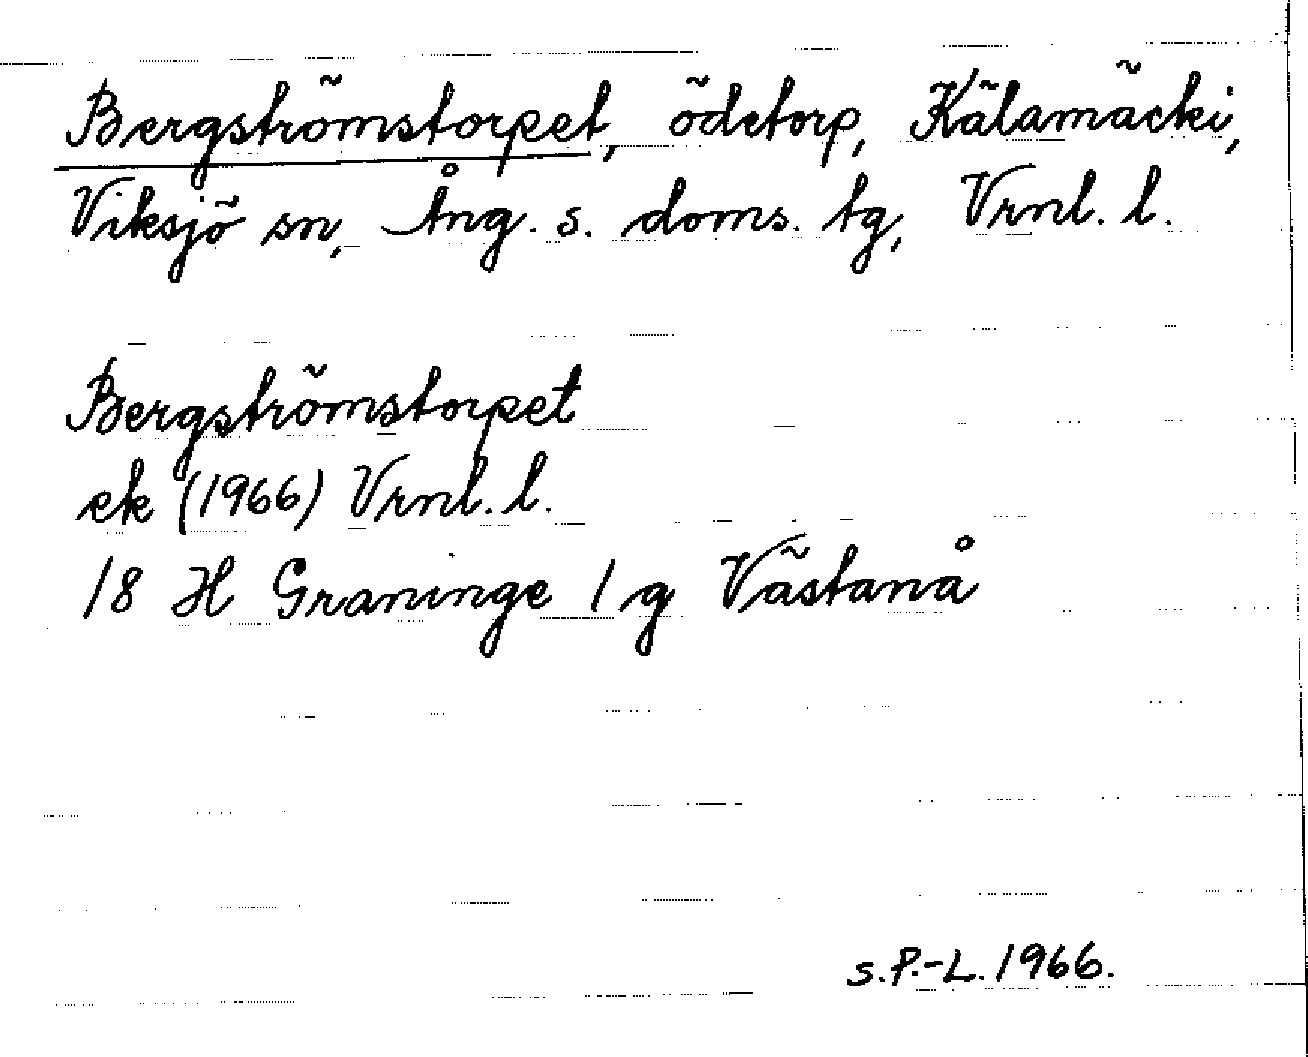 Bergströmstorpet, ödetorp, Kälamäcki,
Viksjö sn, Ång. s. doms. tg, Vrnl. l.
Bergströmstorpet
ek (1966) Vrnl. l.
18 H Graninge 1 g Västanå
s.P.-L. 1966.